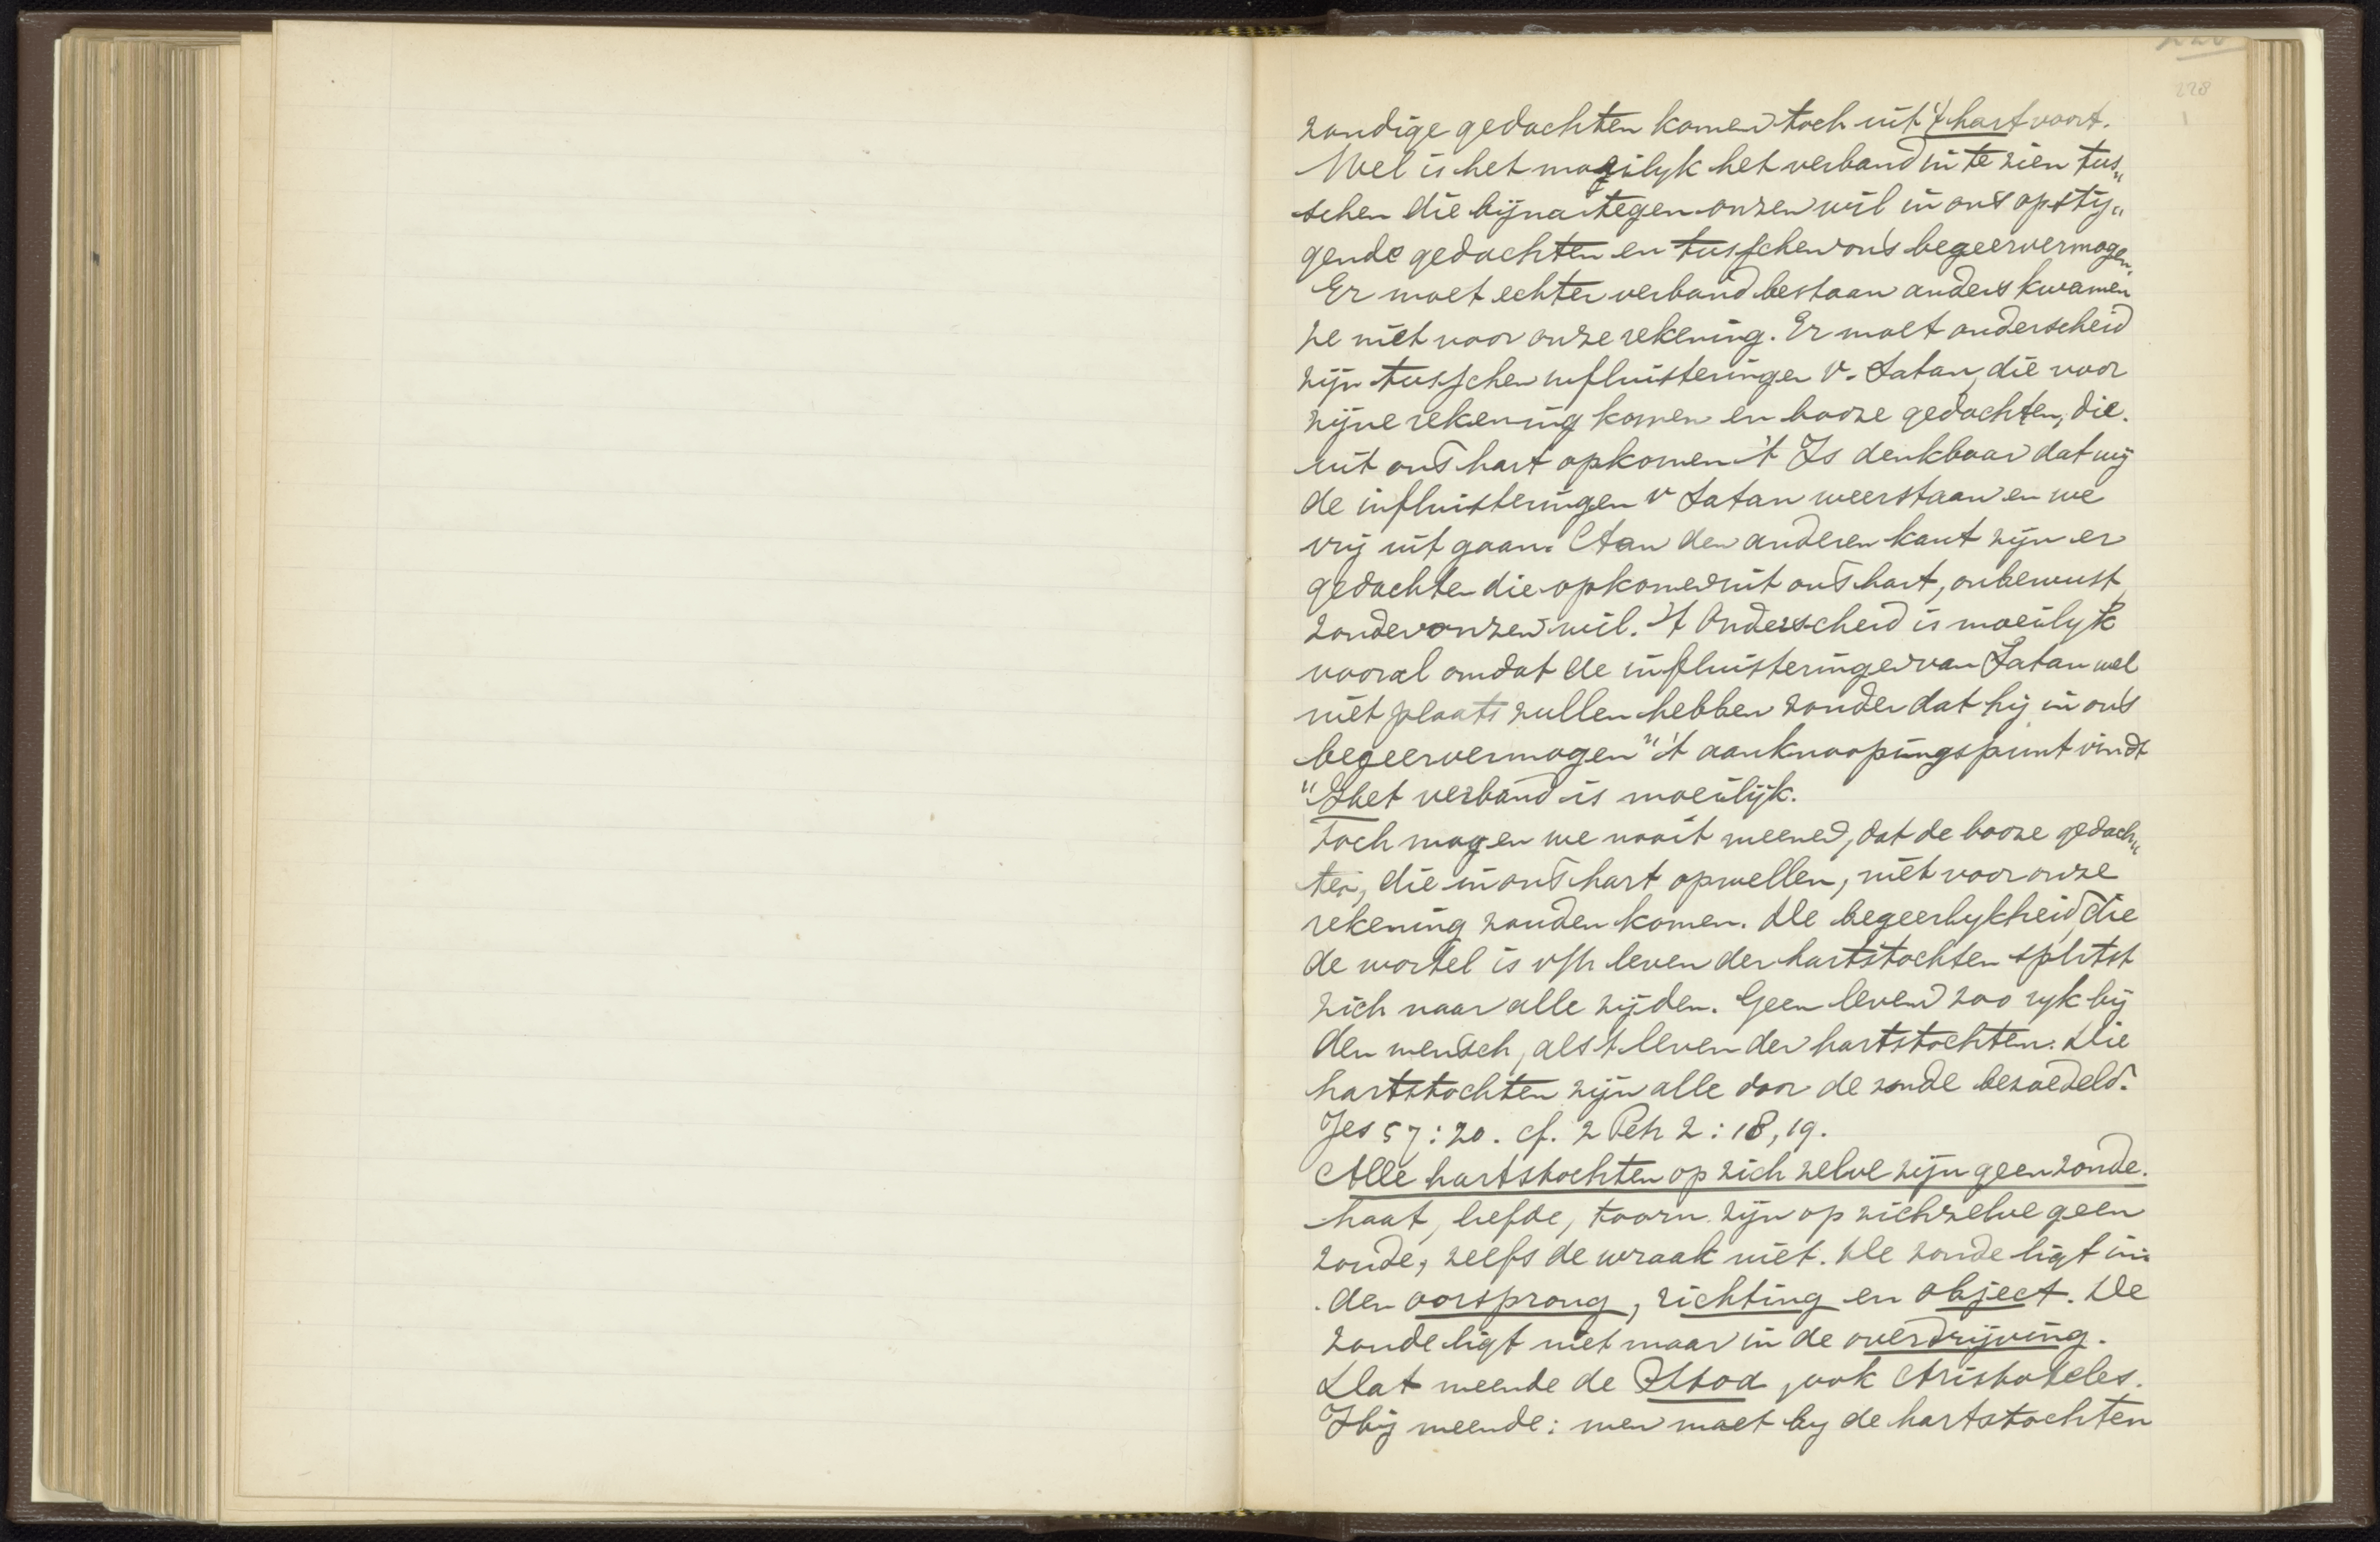 228
zondige gedachten komen toch uit 't hart voort.
Wel is het moeilyk het verband in te zien tus„
schen die bijna tegen onzen wil in ons opstij„
gende gedachten en tusschen ons begeervermogen.
Er moet echter verband bestaan anders kwamen
ze niet voor onze rekening. Er moet onderscheid
zijn tusschen influisteringen v. Satan, die voor
zijne rekening komen en booze gedachten, die
uit ons hart opkomen 't Is denkbaar dat wij
de influisteringen v Satan weerstaan en we
vrij uit gaan. Aan den anderen kant zijn er
gedachten die opkomen uit ons hart, onbewust,
zonder onzen wil. 't Onderscheid is moeilyk
vooral omdat de influisteringen van Satan wel
niet plaats zullen hebben zonder dat hij in ons
begeervermogen " 't aanknoopingspunt vindt
" Het verband is moeilijk.
Toch mogen we nooit meenen, dat de booze gedach„
ten, die in ons hart opwellen, niet voor onze
rekening zouden komen. De begeerlykheid, die
de wortel is v/h leven der hartstochten splitst
zich naar alle zijden. Geen leven zoo ryk bij
den mensch, als 't leven der hartstochten. Die
hartstochten zijn alle door de zonde bezoedeld.
Jes 57:20. cf. 2 Petr 2:18,19.
Alle hartstochten op zich zelve zijn geen zonde.
haat, liefde, toorn zijn op zichzelve geen
zonde, zelfs de wraak niet. De zonde ligt in
den oorsprong, richting en object. De
zonde ligt niet maar in de overdrijving.
Dat meende de Stoa, ook Aristoteles.
Hij meende: men moet by de hartstochten